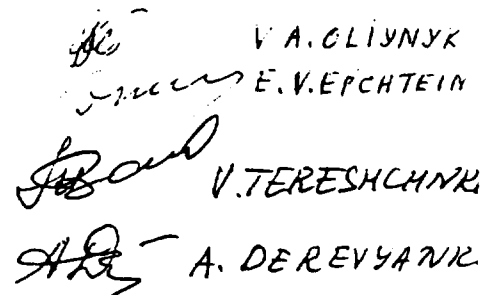 V A. OLIYNYK
E. V. EPCHTEIN
V. TERESHCHNK
A. DEREVYANK